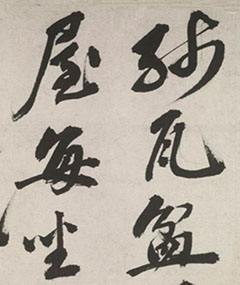 瓦盆
屋每坐